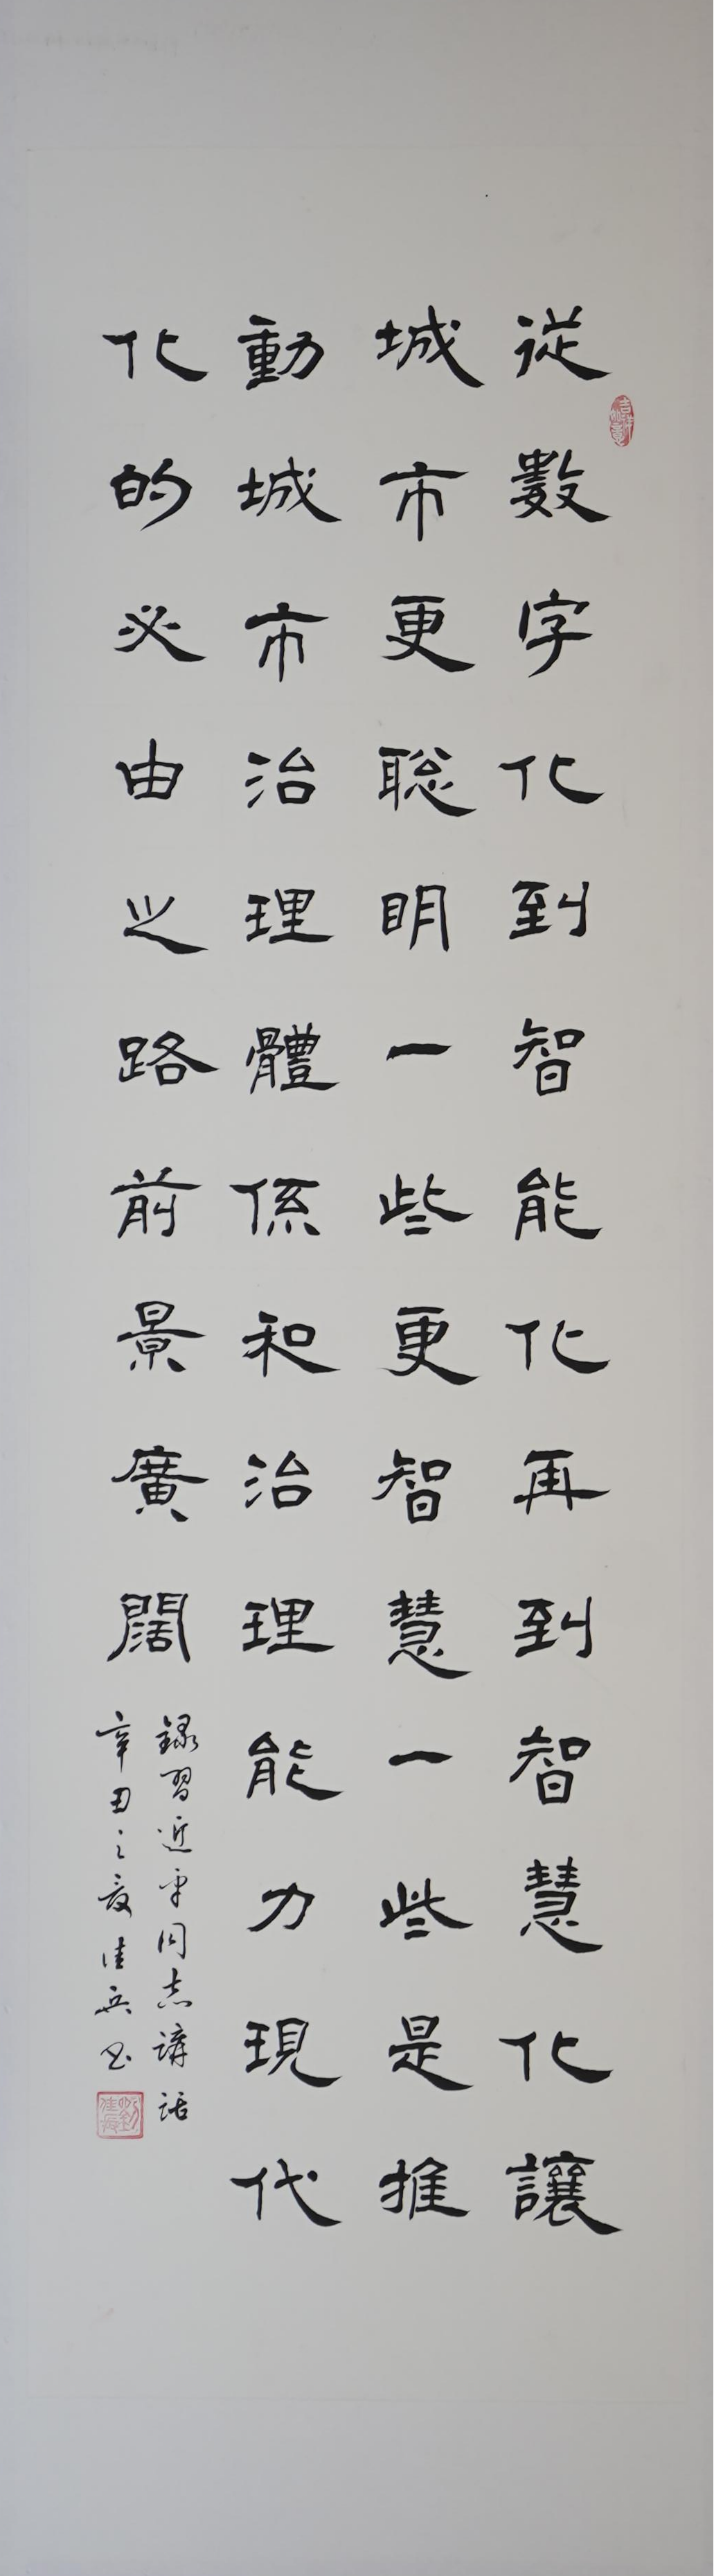 從數字化到智能化再到智慧化讓
城市更聡明一些更智慧一些是推
動城市治理體係和治理能力現代
化的必由之路前景廣闊
録習近平同志講話
辛丑之夏佳兵书
吉祥如意